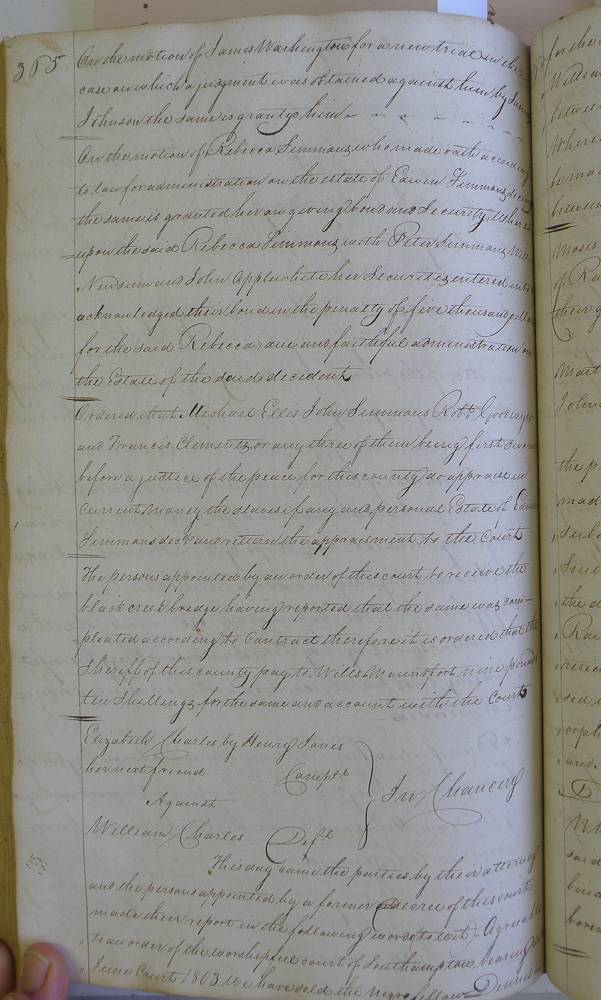 365
On the motion of James Washington for a new trial in the
case on which a judgment was obtained against him by James
Johnson the same is granted him
On the motion of Rebecca Simmons who made oath according
to law for administration on the estate of Edwin Simmons decd
the same is granted her on giving bond and Security, Where
=upon the said Rebecca Simmons with Peter Simmons,
Newsum and John Applewhite her Securities entered into &
acknowledged their bond in the penalty of five thousand dollars
for the said Rebecca, due and faithful administration on
the Estate of the said decedent
Ordered that Michael Ellis John Simmons Robt.
and Francis Clements or any three of them being first sworn
before a justice of the peace for this county do appraise in
current money the slaves if any and personal Estate of Edwin
Simmons decd and return the appraisment to the Court
The persons appointed by an order of this court to receive the
black creek bridge having reported that the same was com-
-pleated according to Contract therefore it is ordered that the
Sheriff of this county pay to Wills Mountfort nine pounds
ten Shillings for the same and account with the Court
Elizabeth Charles by Henry Jones
her next friend Complt
Against
In Chancery
William Charles Deft
This day came the parties by their attorneys
and the persons appointed by a former Decree of this court
made their report in the following words to wit - Agreeable
to an order of the worshipful court of Southampton bearing
June Court 1803 we have sold the Negro fellow Dennis
for the
William
between
Where
be made
between
Moses
of
their
John
the
made
the
said